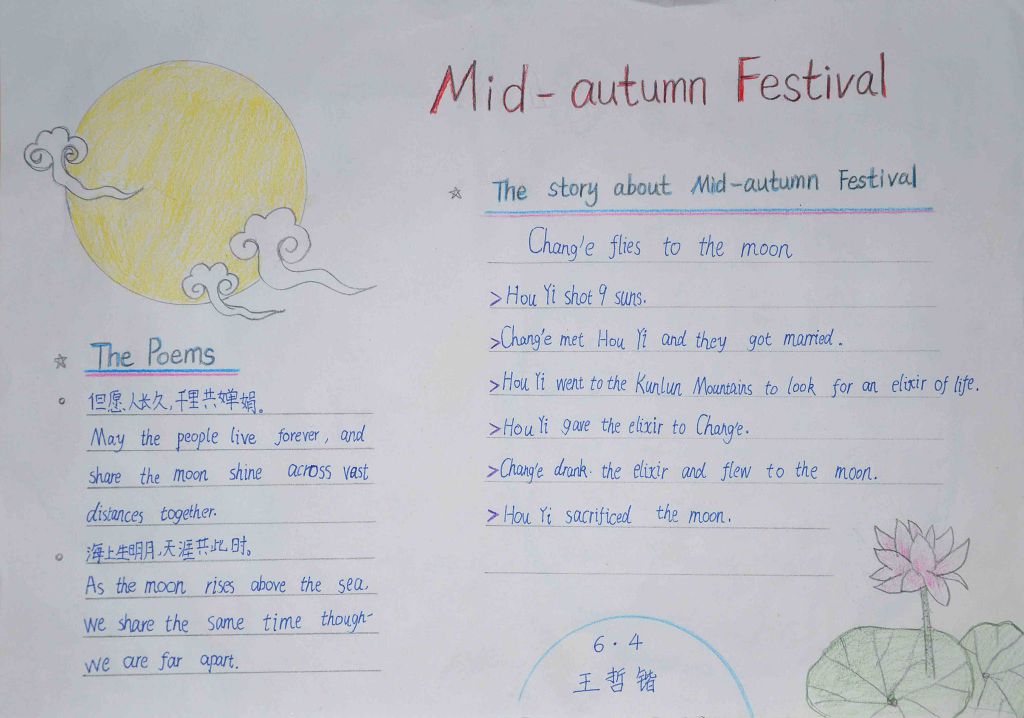 Mid-autumn Festival
The Poems
但愿人长久,千里共婵娟。
May the people live forever, and
share the moon shine across vast
distances together.
海上生明月,天涯共此时。
As the moon rises above the sea,
we share the same time though
we are far apart.
The story about Mid-autumn Festival
Chang'e flies to the moon
>Hou Yi shot 9 suns.
>Chang'e met Hou Yi and they got married.
>Hou Yi went to the Kunlun Mountains to look for an elixir of life.
>Hou Yi gave the elixir to Chang'e.
>Chang'e drank the elixir and flew to the moon.
>Hou Yi sacrificed the moon.
6·4
王哲锴